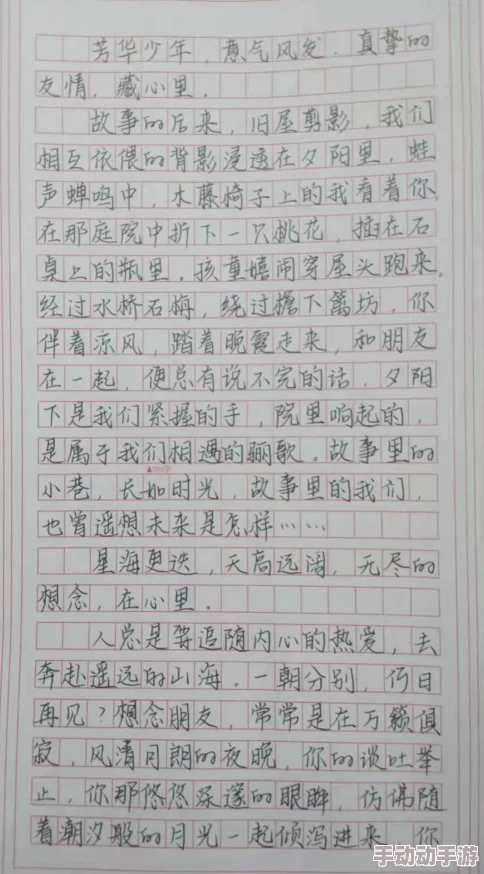 芳华少年，意气风发．真挚的
友情，藏心里．
故事的后来，旧屋剪影，我们
相互依偎的背影浸透在夕阳里，蛙
声蝉鸣中，木藤椅子上的我看着你
在那庭院中折下一只桃花，插在石
桌上的瓶里．孩童嬉闹穿屋头跑来，
经过水桥石梅，绕过檐下篱坊．你
伴着凉风，踏着晚霞走来，和朋友
在一起，便总有说不完的话，夕阳
下是我们紧握的手，院里响起的，
是属于我们相遇的骊歌．故事里的
▲300字
小巷，长如时光，故事里的我们，
也曾遥想未来是怎样……
星海更迭，天高远阔，无尽的
想念，在心里．
人总是要追随内心的热爱，去
奔赴遥远的山海．一朝分别，何日
再见？想念朋友，常常是在万籁俱
寂，风清月朗的夜晚，你的谈吐举
止，你那悠悠深邃的眼眸，仿佛随
着潮汐般的月光一起倾泻进来．你
手动动手游